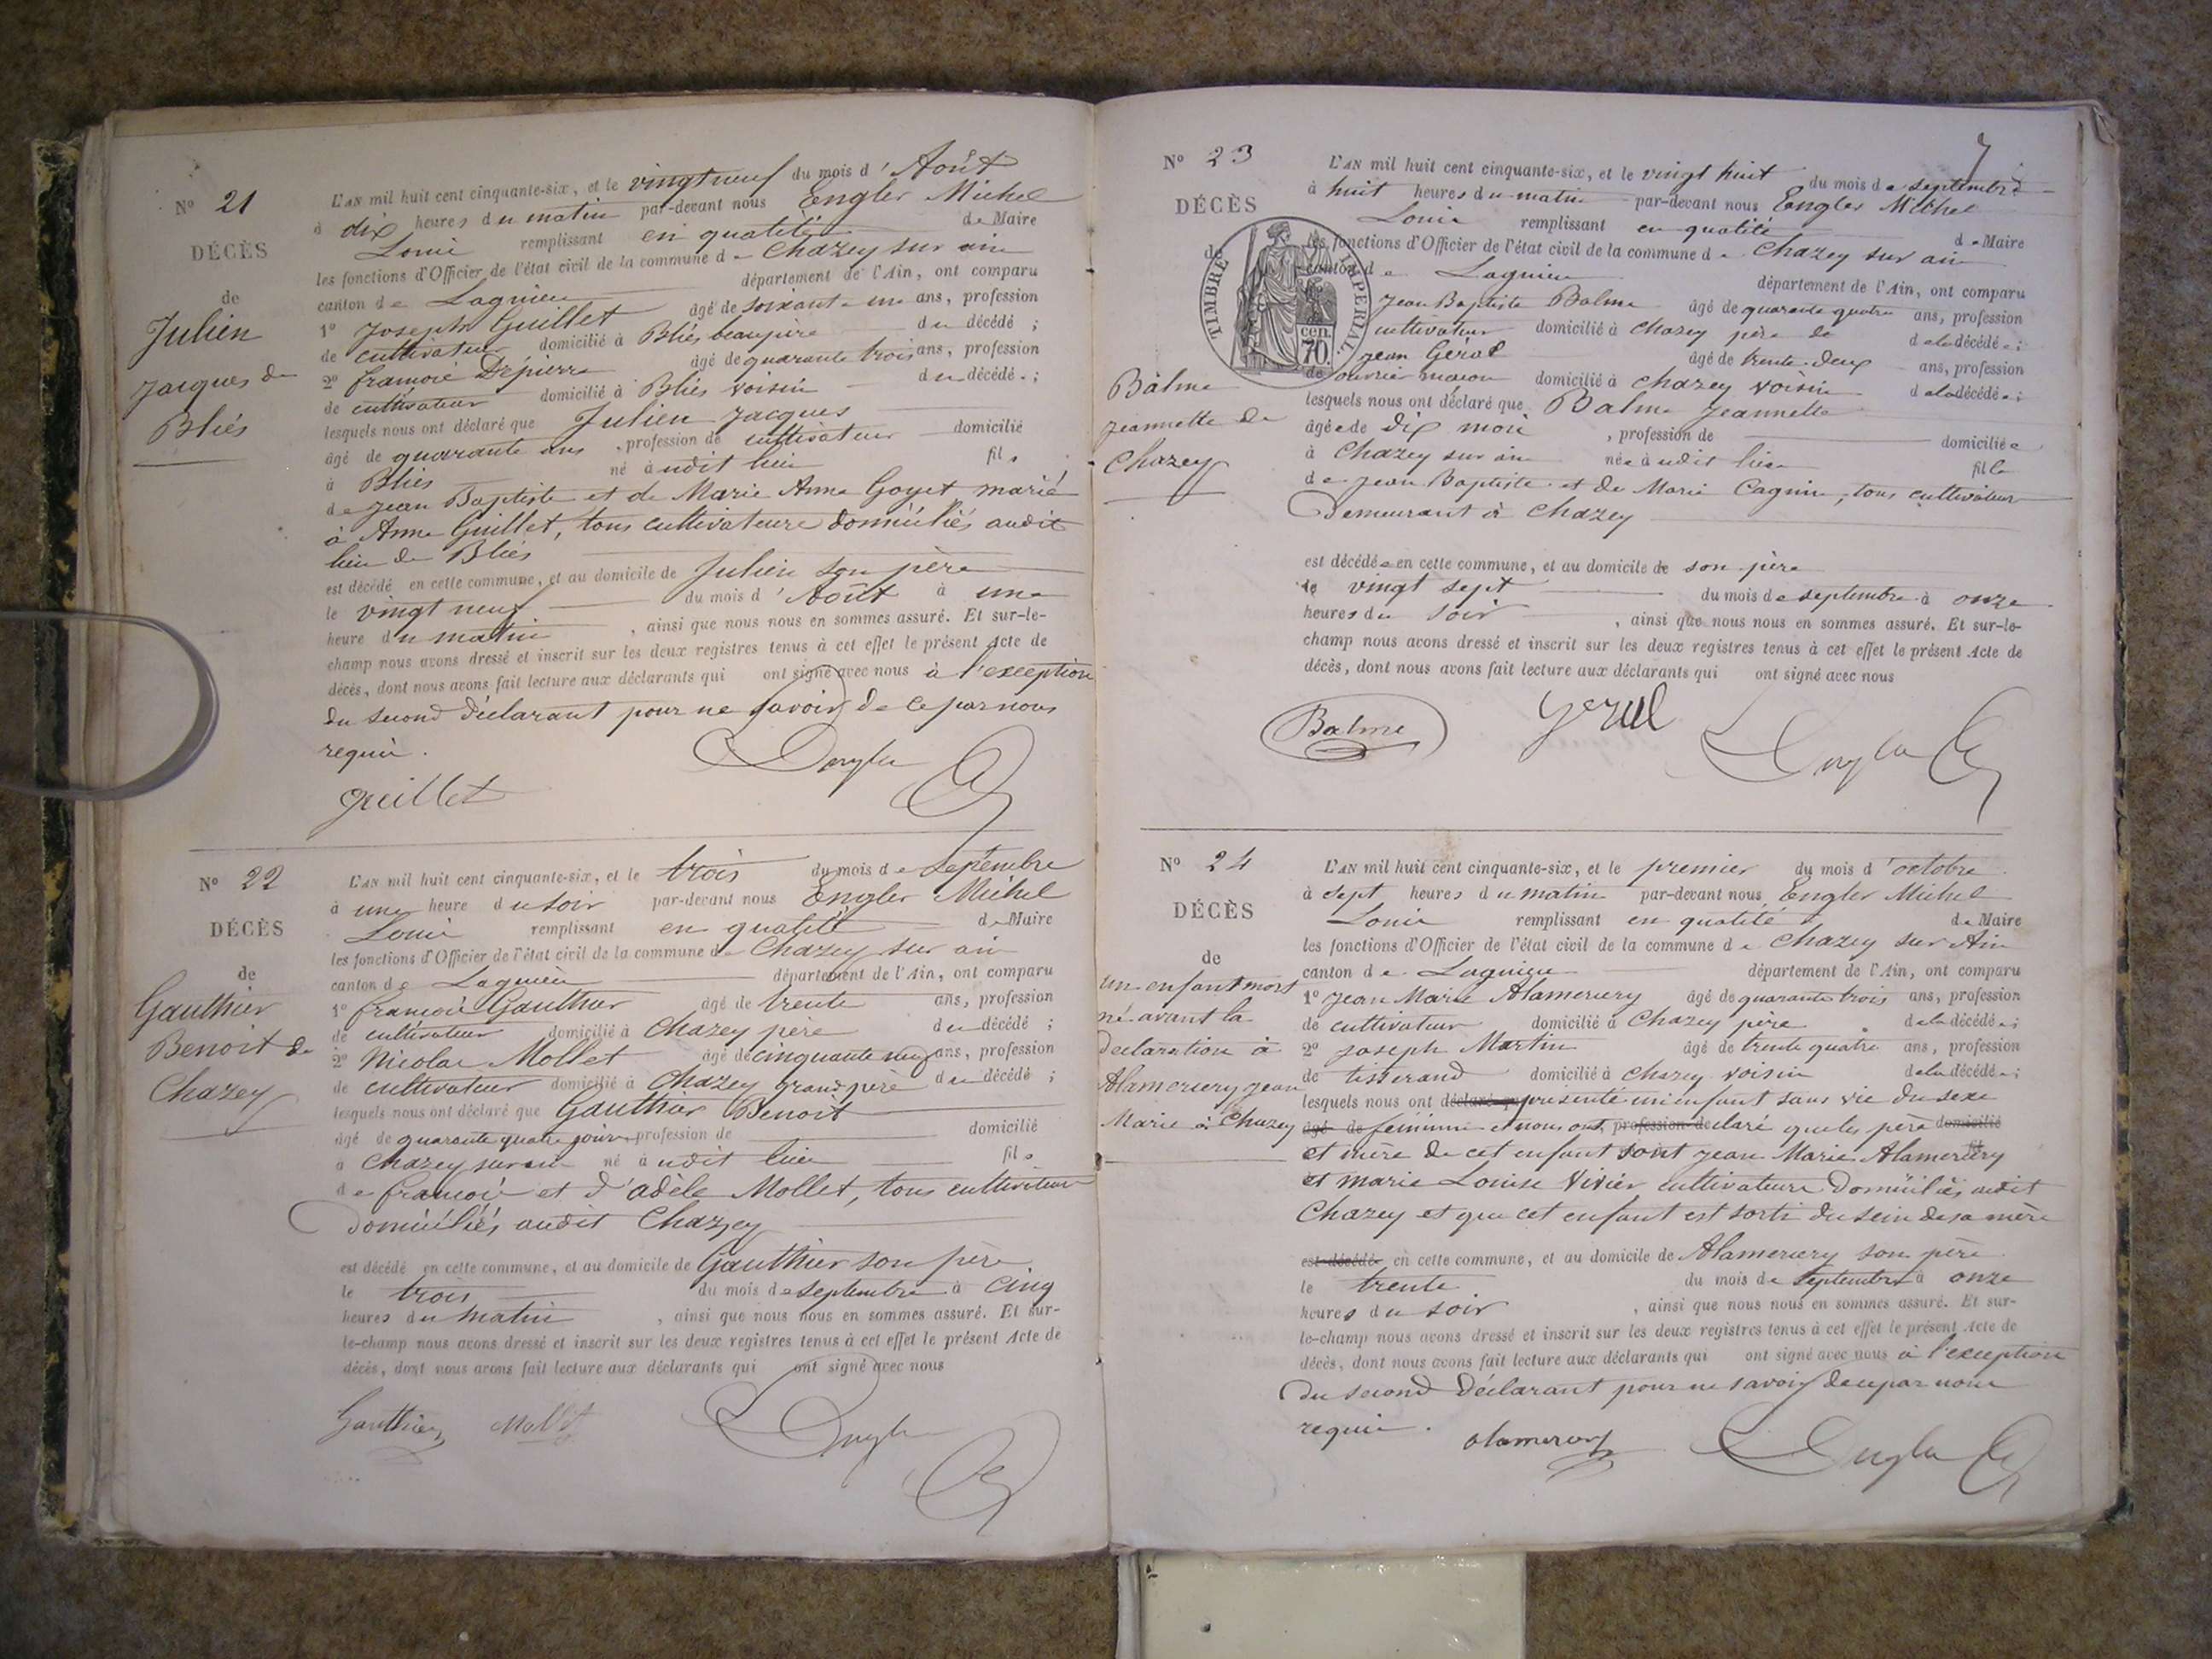 N° 21
DÉCÈS
de
Julien
Jacques de
Bliés
L'AN mil huit cent cinquante-six, et le vingt neuf du mois d' Août
à dix heures du matin par-devant nous Engler Michel
Louis remplissant en qualité de Maire
les fonctions d'Officier de l'état civil de la commune de Chazey sur ain
canton de Lagnieu département de l'Ain, ont comparu
1° Joseph Guillet âgé de soixante un ans, profession
de cultivateur domicilié à Bliés beaupère du décédé ;
2° françois Dépierre âgé de quarante trois ans, profession
de cultivateur domicilié à Bliés voisin du décédé ;
lesquels nous ont déclaré que Julien Jacques
âgé de quarante ans , profession de cultivateur domicilié
à Bliés né audit lieu fils
de Jean Baptiste et de Marie Anne Goyet marié
à Anne Guillet, tous cultivateurs domiciliés audit
lieu de Bliés
est décédé en cette commune, et au domicile de Julien son père
le vingt neuf du mois d' Août à une
heure du matin , ainsi que nous nous en sommes assuré. Et sur-le-
champ nous avons dressé et inscrit sur les deux registres tenus à cet effet le présent Acte de
décès, dont nous avons fait lecture aux déclarants qui ont signé avec nous à l'exception
du second déclarant pour ne savoir de ce par nous
requis .
Guillet Engler
N° 22
DÉCÈS
de
Gauthier
Benoit de
Chazey
L'AN mil huit cent cinquante-six, et le trois du mois de septembre
à une heure du soir par-devant nous Engler Michel
Louis remplissant en qualité de Maire
les fonctions d'Officier de l'état civil de la commune de Chazey sur ain
canton de Lagnieu département de l'Ain, ont comparu
1° françois Gauthier âgé de trente ans, profession
de cultivateur domicilié à Chazey père du décédé ;
2° Nicolas Mollet âgé de cinquante neuf ans, profession
de cultivateur domicilié à Chazey grand père du décédé ;
lesquels nous ont déclaré que Gauthier Benoit
âgé de quarante quatre jours, profession de domicilié
à Chazey sur ain né audit lieu fils
de françois et d'adèle Mollet, tous cultivateurs
domiciliés audit Chazey
est décédé en cette commune, et au domicile de Gauthier son père
le trois du mois de septembre à cinq
heures du matin , ainsi que nous nous en sommes assuré. Et sur-
le-champ nous avons dressé et inscrit sur les deux registres tenus à cet effet le présent Acte de
décès, dont nous avons fait lecture aux déclarants qui ont signé avec nous
Gauthier Mollet Engler
7
N° 23
DÉCÈS
de
TIMBRE IMPERIAL
cen.
70.
Balme
Jeannette de
Chazey
L'AN mil huit cent cinquante-six, et le vingt huit du mois de septembre
à huit heures du matin par-devant nous Engler Michel
Louis remplissant en qualité de Maire
les fonctions d'Officier de l'état civil de la commune de Chazey sur ain
canton de Lagnieu département de l'Ain, ont comparu
Jean Baptiste Balme âgé de quarante quatre ans, profession
cultivateur domicilié à Chazey père de de la décédée ;
Jean Géral âgé de trente-deux ans, profession
de ouvrier maçon domicilié à Chazey voisin de la décédée ;
lesquels nous ont déclaré que Balme Jeannette
âgée de dix mois , profession de domiciliée
à Chazey sur ain née audit lieu fille
de Jean Baptiste et de Marie Cagnin, tous cultivateurs
Demeurant à Chazey
est décédée en cette commune, et au domicile de son père
le vingt sept du mois de septembre à onze
heures du soir , ainsi que nous nous en sommes assuré. Et sur-le-
champ nous avons dressé et inscrit sur les deux registres tenus à cet effet le présent Acte de
décès, dont nous avons fait lecture aux déclarants qui ont signé avec nous
Balme Geral Engler
N° 24
DÉCÈS
de
un enfant mort
né avant la
declaration à
Alamercery Jean
Marie à Chazey
L'AN mil huit cent cinquante-six, et le premier du mois d'octobre
à sept heures du matin par-devant nous Engler Michel
Louis remplissant en qualité de Maire
les fonctions d'Officier de l'état civil de la commune de Chazey sur Ain
canton de Lagnieu département de l'Ain, ont comparu
1° Jean Marie Alamercery âgé de quarante trois ans, profession
de cultivateur domicilié à Chazey père de la décédée ;
2° Joseph Martin âgé de trente quatre ans, profession
de tisserand domicilié à Chazey voisin de la décédée ;
lesquels nous ont déclaré que presenté un enfant sans vie du sexe
âgé de féminin et nous ont, profession de déclaré que les père domicilié
et mère de cet enfant sont Jean Marie Alamercery
et marie Louise Vivier cultivateurs Domiciliés audit
Chazey et que cet enfant est sorti du sein de sa mère
est décédé en cette commune, et au domicile de Alamercery son père
le trente du mois de septembre à onze
heures du soir , ainsi que nous nous en sommes assuré. Et sur-
le-champ nous avons dressé et inscrit sur les deux registres tenus à cet effet le présent Acte de
décès, dont nous avons fait lecture aux déclarants qui ont signé avec nous à l'exception
du second Déclarant pour ne savoir de ce par nous
requis . Alamercery Engler